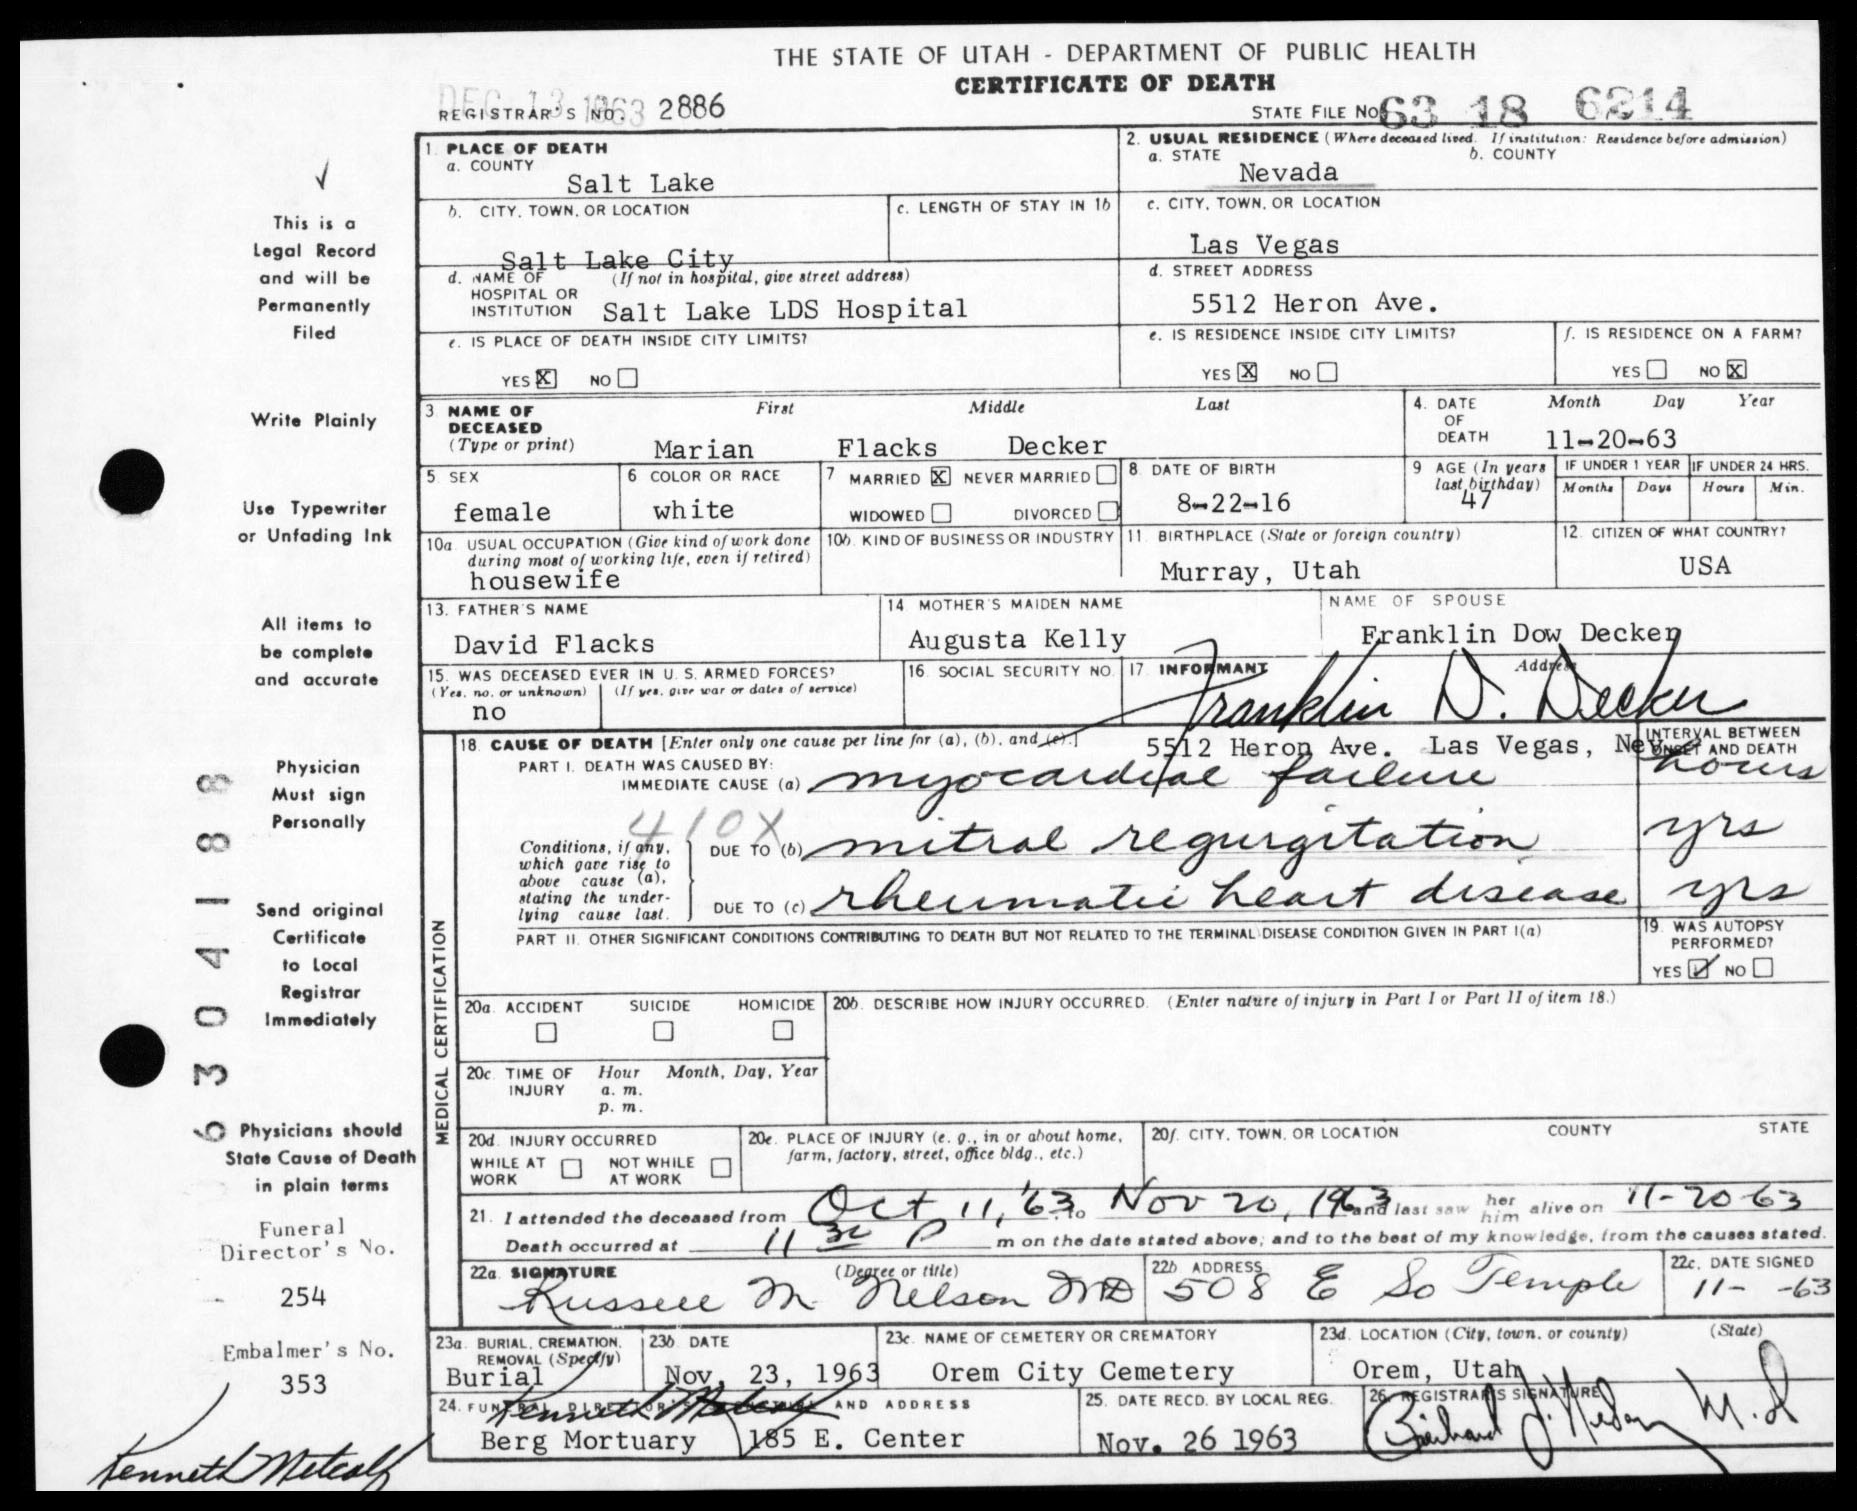 THE STATE OF UTAH - DEPARTMENT OF PUBLIC HEALTH
CERTIFICATE OF DEATH
DEC 13 1963
REGISTRAR'S NO. 2886
STATE FILE NO. 63 18 6214
1. PLACE OF DEATH
a. COUNTY
Salt Lake
2. USUAL RESIDENCE (Where deceased lived. If institution: Residence before admission)
a. STATE b. COUNTY
Nevada
b. CITY, TOWN, OR LOCATION
Salt Lake City
c. LENGTH OF STAY IN 1b
c. CITY, TOWN, OR LOCATION
Las Vegas
d. NAME OF (If not in hospital, give street address)
HOSPITAL OR
INSTITUTION Salt Lake LDS Hospital
d. STREET ADDRESS
5512 Heron Ave.
e. IS PLACE OF DEATH INSIDE CITY LIMITS?
YES X NO
e. IS RESIDENCE INSIDE CITY LIMITS?
YES X NO
f. IS RESIDENCE ON A FARM?
YES NO X
3 NAME OF DECEASED
(Type or print)
First Middle Last
Marian Flacks Decker
4. DATE OF DEATH
Month Day Year
11-20-63
5 SEX
female
6 COLOR OR RACE
white
7 MARRIED X NEVER MARRIED
WIDOWED DIVORCED
8. DATE OF BIRTH
8-22-16
9 AGE (In years last birthday)
47
IF UNDER 1 YEAR
Months Days
IF UNDER 24 HRS.
Hours Min.
10a USUAL OCCUPATION (Give kind of work done
during most of working life, even if retired)
housewife
10b. KIND OF BUSINESS OR INDUSTRY
11. BIRTHPLACE (State or foreign country)
Murray, Utah
12. CITIZEN OF WHAT COUNTRY?
USA
13. FATHER'S NAME
David Flacks
14 MOTHER'S MAIDEN NAME
Augusta Kelly
NAME OF SPOUSE
Franklin Dow Decker
15. WAS DECEASED EVER IN U. S. ARMED FORCES?
(Yes, no, or unknown) (If yes, give war or dates of service)
no
16. SOCIAL SECURITY NO.
17. INFORMANT Address
Franklin D. Decker
5512 Heron Ave. Las Vegas, Nev
18. CAUSE OF DEATH [Enter only one cause per line for (a), (b), and (c).]
INTERVAL BETWEEN
ONSET AND DEATH
PART I. DEATH WAS CAUSED BY:
IMMEDIATE CAUSE (a) myocardial failure hours
410X
Conditions, if any,
which gave rise to
above cause (a),
stating the under-
lying cause last.
DUE TO (b) mitral regurgitation yrs
DUE TO (c) rheumatic heart disease yrs
PART II. OTHER SIGNIFICANT CONDITIONS CONTRIBUTING TO DEATH BUT NOT RELATED TO THE TERMINAL DISEASE CONDITION GIVEN IN PART I(a)
19. WAS AUTOPSY
PERFORMED?
YES ✓ NO
20a. ACCIDENT SUICIDE HOMICIDE
20b. DESCRIBE HOW INJURY OCCURRED. (Enter nature of injury in Part I or Part II of item 18.)
20c. TIME OF INJURY
Hour Month, Day, Year
a. m.
p. m.
20d. INJURY OCCURRED
WHILE AT WORK NOT WHILE AT WORK
20e. PLACE OF INJURY (e. g., in or about home,
farm, factory, street, office bldg., etc.)
20f. CITY, TOWN, OR LOCATION COUNTY STATE
21. I attended the deceased from Oct 11, '63 to Nov 20, 1963 and last saw her him alive on 11-20-63
Death occurred at 11 30 P m on the date stated above; and to the best of my knowledge, from the causes stated.
22a. SIGNATURE (Degree or title)
Russell M Nelson MD
22b ADDRESS
508 E So Temple
22c. DATE SIGNED
11- -63
23a BURIAL, CREMATION,
REMOVAL (Specify)
Burial
23b DATE
Nov. 23, 1963
23c. NAME OF CEMETERY OR CREMATORY
Orem City Cemetery
23d. LOCATION (City, town, or county) (State)
Orem, Utah
24. FUNERAL DIRECTOR'S SIGNATURE AND ADDRESS
Kenneth Metcalf
Berg Mortuary 185 E. Center
25. DATE RECD. BY LOCAL REG.
Nov. 26 1963
26. REGISTRAR'S SIGNATURE
MEDICAL CERTIFICATION
✓
This is a
Legal Record
and will be
Permanently
Filed
Write Plainly
Use Typewriter
or Unfading Ink
All items to
be complete
and accurate
Physician
Must sign
Personally
Send original
Certificate
to Local
Registrar
Immediately
Physicians should
State Cause of Death
in plain terms
6304188
Funeral
Director's No.
254
Embalmer's No.
353
Kenneth Metcalf